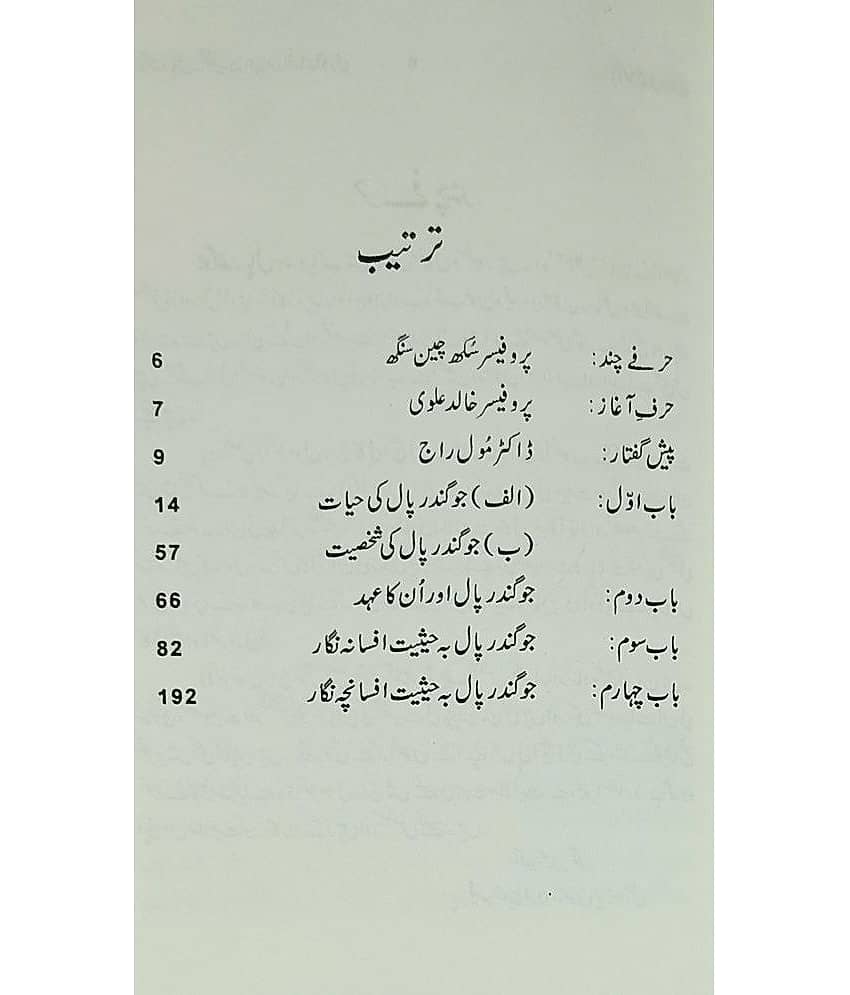 ترتیب
حرفے چند: پروفیسر سُکھ چین سنگھ 6
حرفِ آغاز: پروفیسر خالد علوی 7
پیش گفتار: ڈاکٹر مُول راج 9
باب اوّل: (الف) جوگندر پال کی حیات 14
(ب) جوگندر پال کی شخصیت 57
باب دوم: جوگندر پال اور اُن کا عہد 66
باب سوم: جوگندر پال بہ حیثیت افسانہ نگار 82
باب چہارم: جوگندر پال بہ حیثیت افسانچہ نگار 192